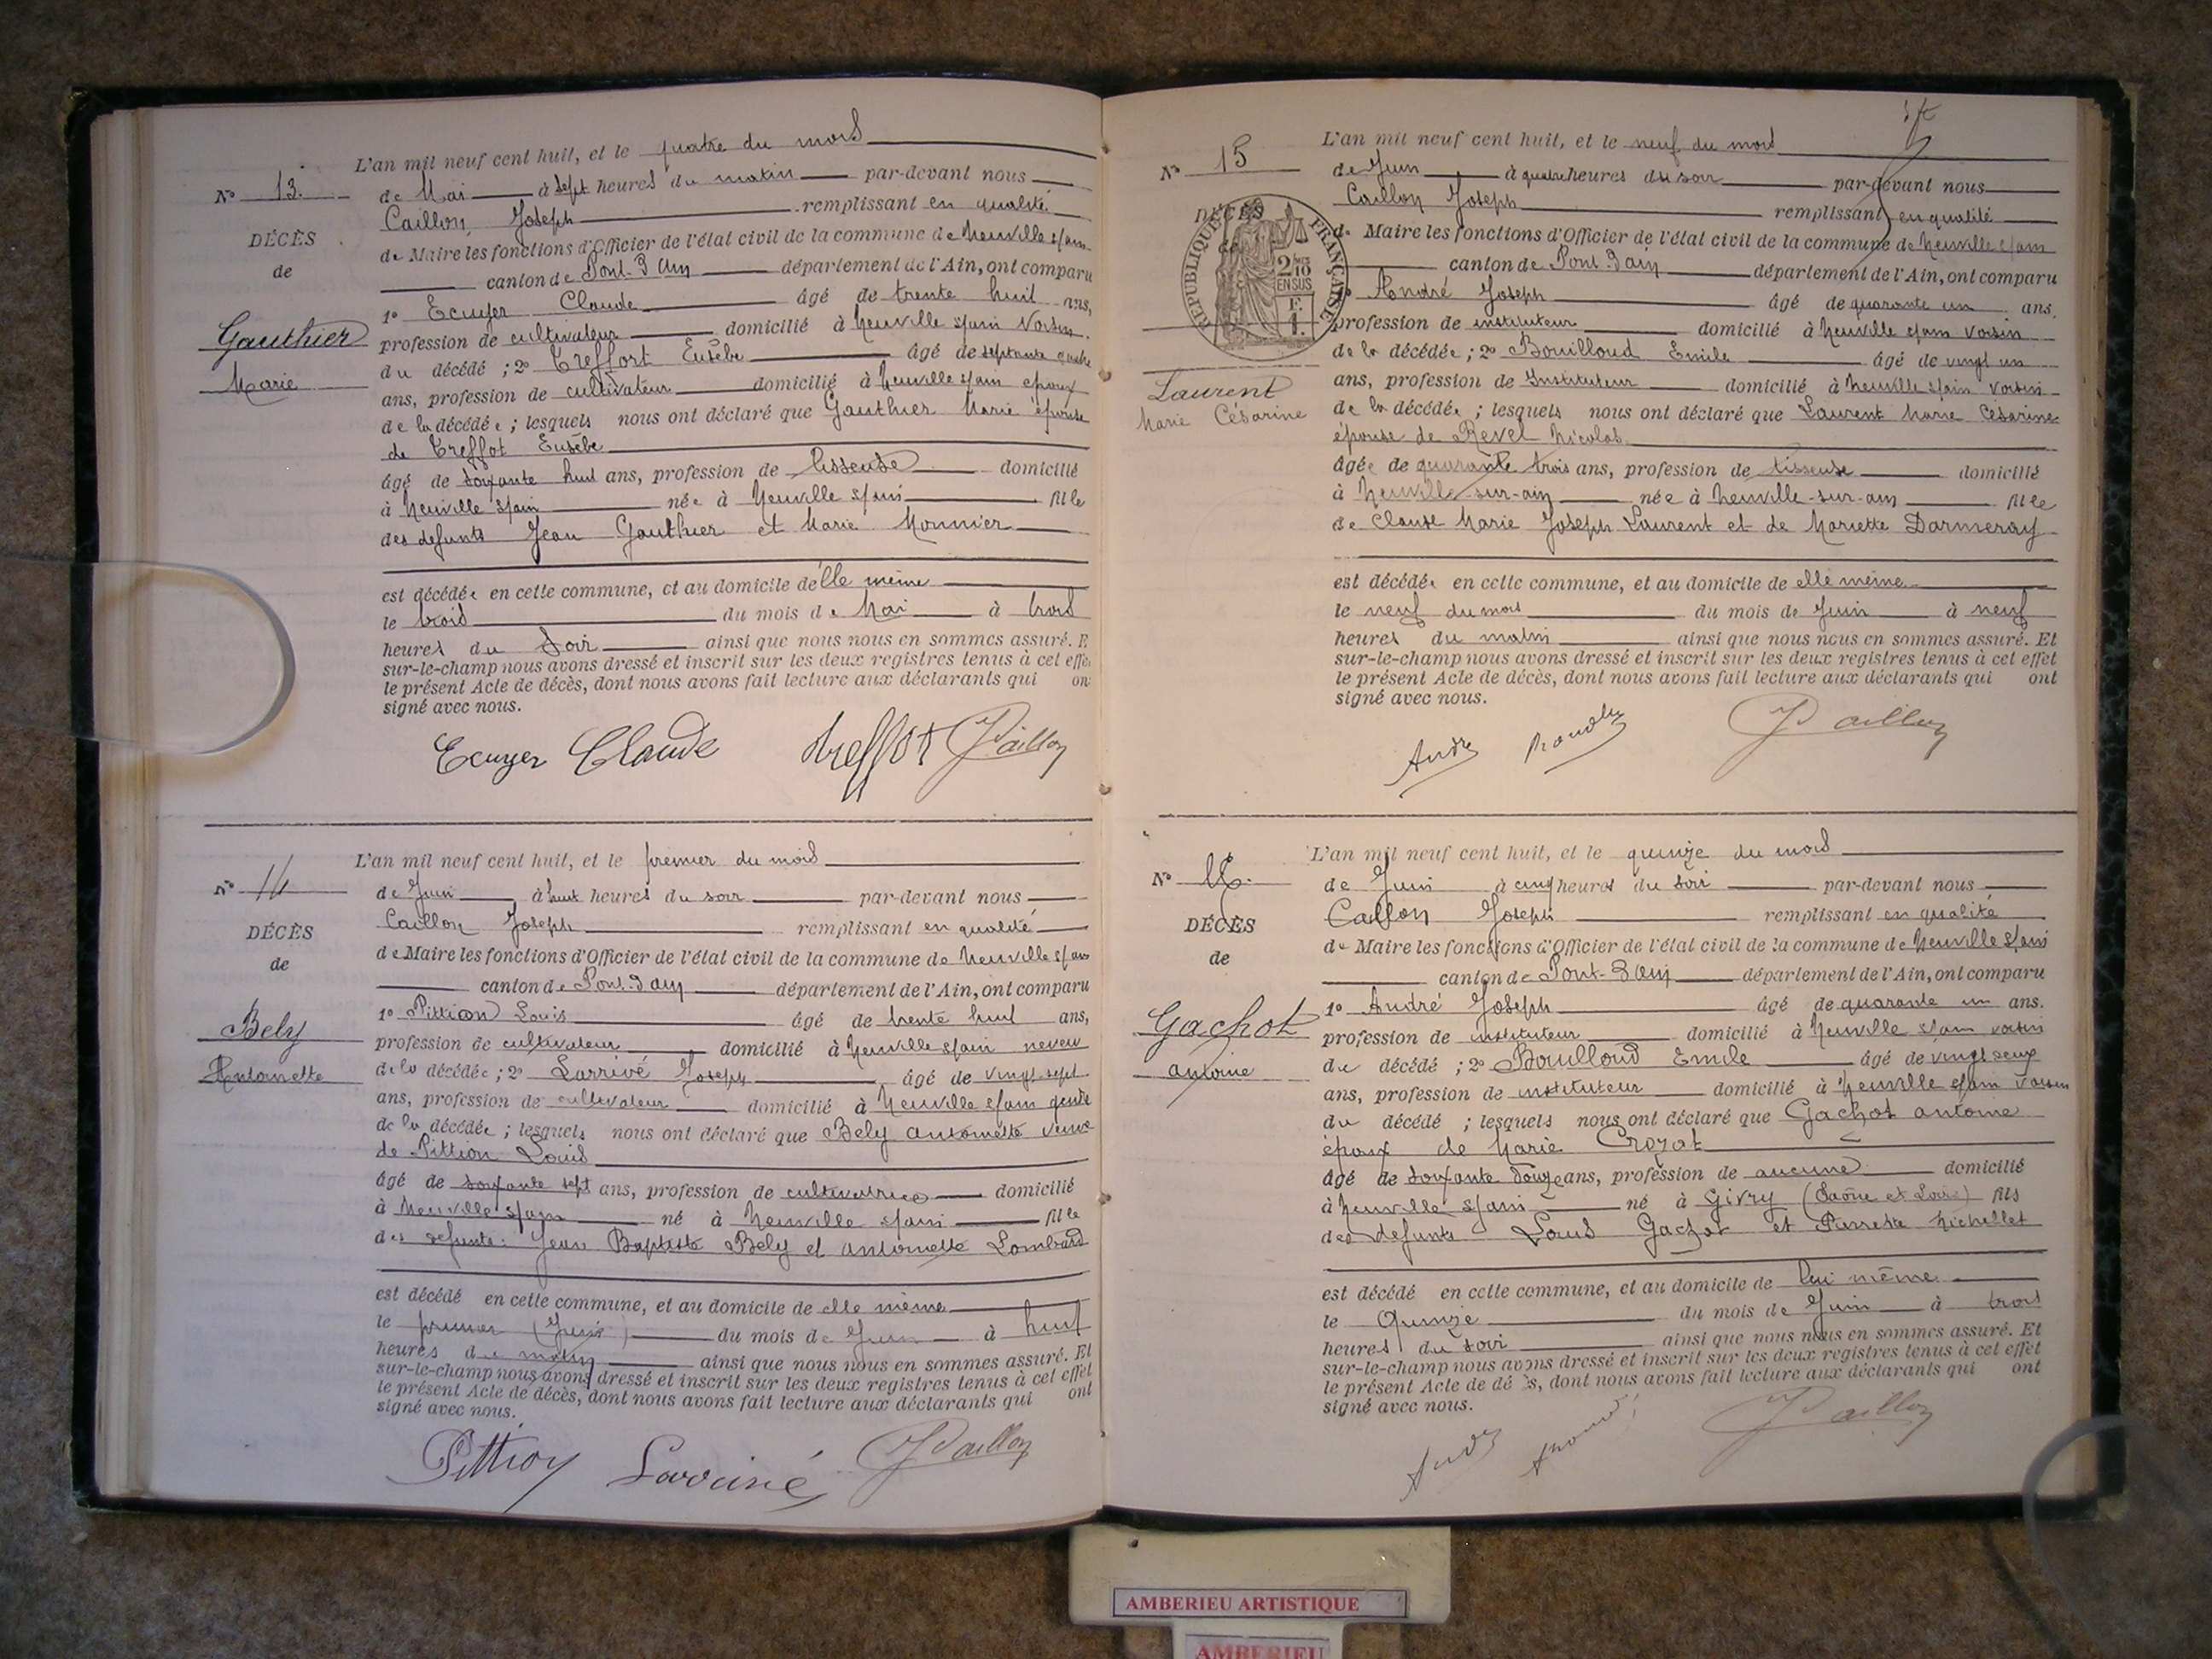 L'an mil neuf cent huit, et le quatre du mois
N° 13.
de Mai à sept heures du matin par-devant nous
Caillon Joseph remplissant en qualité
DÉCÈS
de Maire les fonctions d'Officier de l'état civil de la commune de Neuville s/ain
de
canton de Pont-d'Ain département de l'Ain, ont comparu
1° Ecuyer Claude âgé de trente huit ans,
Gauthier
profession de cultivateur domicilié à Neuville s/ain voisin
du décédé ; 2° Treffort Eusèbe âgé de septante quatre
Marie
ans, profession de cultivateur domicilié à Neuville s/ain époux
de la décédée ; lesquels nous ont déclaré que Gauthier Marie épouse
de Treffot Eusèbe
âgé de soixante huit ans, profession de tisseuse domicilié
à Neuville s/ain née à Neuville s/ain fille
des defunts Jean Gauthier et Marie Monnier
est décédée en cette commune, et au domicile de elle même
le trois du mois de Mai à trois
heures du soir ainsi que nous nous en sommes assuré. E
sur-le-champ nous avons dressé et inscrit sur les deux registres tenus à cet effe
le présent Acte de décès, dont nous avons fait lecture aux déclarants qui on
signé avec nous.
Ecuyer Claude Treffot J Caillon
L'an mil neuf cent huit, et le premier du mois
N° 14
de Juin à huit heures du soir par-devant nous
Caillon Joseph remplissant en qualité
DÉCÈS
de Maire les fonctions d'Officier de l'état civil de la commune de Neuville s/ain
de
canton de Pont-d'ain département de l'Ain, ont comparu
1° Pittion Louis âgé de trente huit ans,
Bely
profession de cultivateur domicilié à Neuville s/ain neveu
Antoinette
de la décédée ; 2° Larrivé Joseph âgé de vingt-sept
ans, profession de cultivateur domicilié à Neuville s/ain gendre
de la décédée ; lesquels nous ont déclaré que Bely Antoinette veuve
de Pittion Louis
âgé de soixante sept ans, profession de cultivatrice domicilié
à Neuville s/ain né à Neuville s/ain fille
des defunts Jean Baptiste Bely et Antoinette Lombard
est décédé en cette commune, et au domicile de elle même
le premier (Juin) du mois de Juin à huit
heures du matin ainsi que nous nous en sommes assuré. Et
sur-le-champ nous avons dressé et inscrit sur les deux registres tenus à cet effet
le présent Acte de décès, dont nous avons fait lecture aux déclarants qui ont
signé avec nous.
Pittion Larrivé J Caillon
L'an mil neuf cent huit, et le neuf du mois
N° 15
de Juin à quatre heures du soir par-devant nous
Caillon Joseph remplissant en qualité
DÉCÈS
RÉPUBLIQUE FRANÇAISE
2/10 EN SUS
F. 1.
de Maire les fonctions d'Officier de l'état civil de la commune de Neuville s/ain
canton de Pont-d'ain département de l'Ain, ont comparu
André Joseph âgé de quarante un ans,
profession de instituteur domicilié à Neuville s/ain voisin
de la décédée ; 2° Bouilloud Emile âgé de vingt un
Laurent
ans, profession de Instituteur domicilié à Neuville s/ain voisin
Marie Césarine
de la décédée ; lesquels nous ont déclaré que Laurent Marie Césarine
épouse de Revel Nicolas
âgée de quarante trois ans, profession de tisseuse domicilié
à Neuville-sur-ain née à Neuville-sur-ain fille
de Claude Marie Joseph Laurent et de Mariette Darmeray
est décédée en cette commune, et au domicile de elle même
le neuf du mois du mois de Juin à neuf
heures du matin ainsi que nous nous en sommes assuré. Et
sur-le-champ nous avons dressé et inscrit sur les deux registres tenus à cet effet
le présent Acte de décès, dont nous avons fait lecture aux déclarants qui ont
signé avec nous.
André J Caillon
L'an mil neuf cent huit, et le quinze du mois
N° 16.
de Juin à cinq heures du soir par-devant nous
Caillon Joseph remplissant en qualité
DÉCÈS
de Maire les fonctions d'Officier de l'état civil de la commune de Neuville s/ain
de
canton de Pont-d'ain département de l'Ain, ont comparu
1° André Joseph âgé de quarante un ans.
Gachot
profession de instituteur domicilié à Neuville s/ain voisin
du décédé ; 2° Bouilloud Emile âgé de vingt deux
antoine
ans, profession de instituteur domicilié à Neuville s/ain voisin
du décédé ; lesquels nous ont déclaré que Gachot antoine
époux de Marie Crozat
âgé de soixante douze ans, profession de aucune domicilié
à Neuville s/ain né à Givry (Saône et Loire) fils
des defunts Louis Gachot et Pierrette Michellet
est décédé en cette commune, et au domicile de lui même
le Quinze du mois de Juin à trois
heures du soir ainsi que nous nous en sommes assuré. Et
sur-le-champ nous avons dressé et inscrit sur les deux registres tenus à cet effet
le présent Acte de dé ès, dont nous avons fait lecture aux déclarants qui ont
signé avec nous.
André J Caillon
AMBERIEU ARTISTIQUE
AMBERIEU